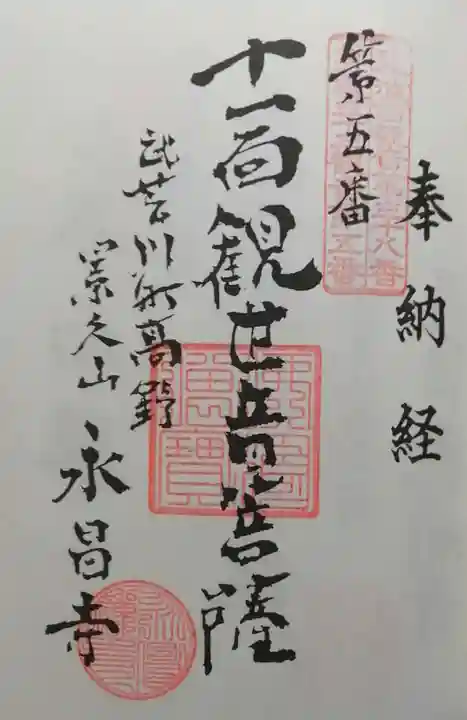 奉納経
第五番
十一面観世音菩薩
武芸川町高野
景久山
永昌寺